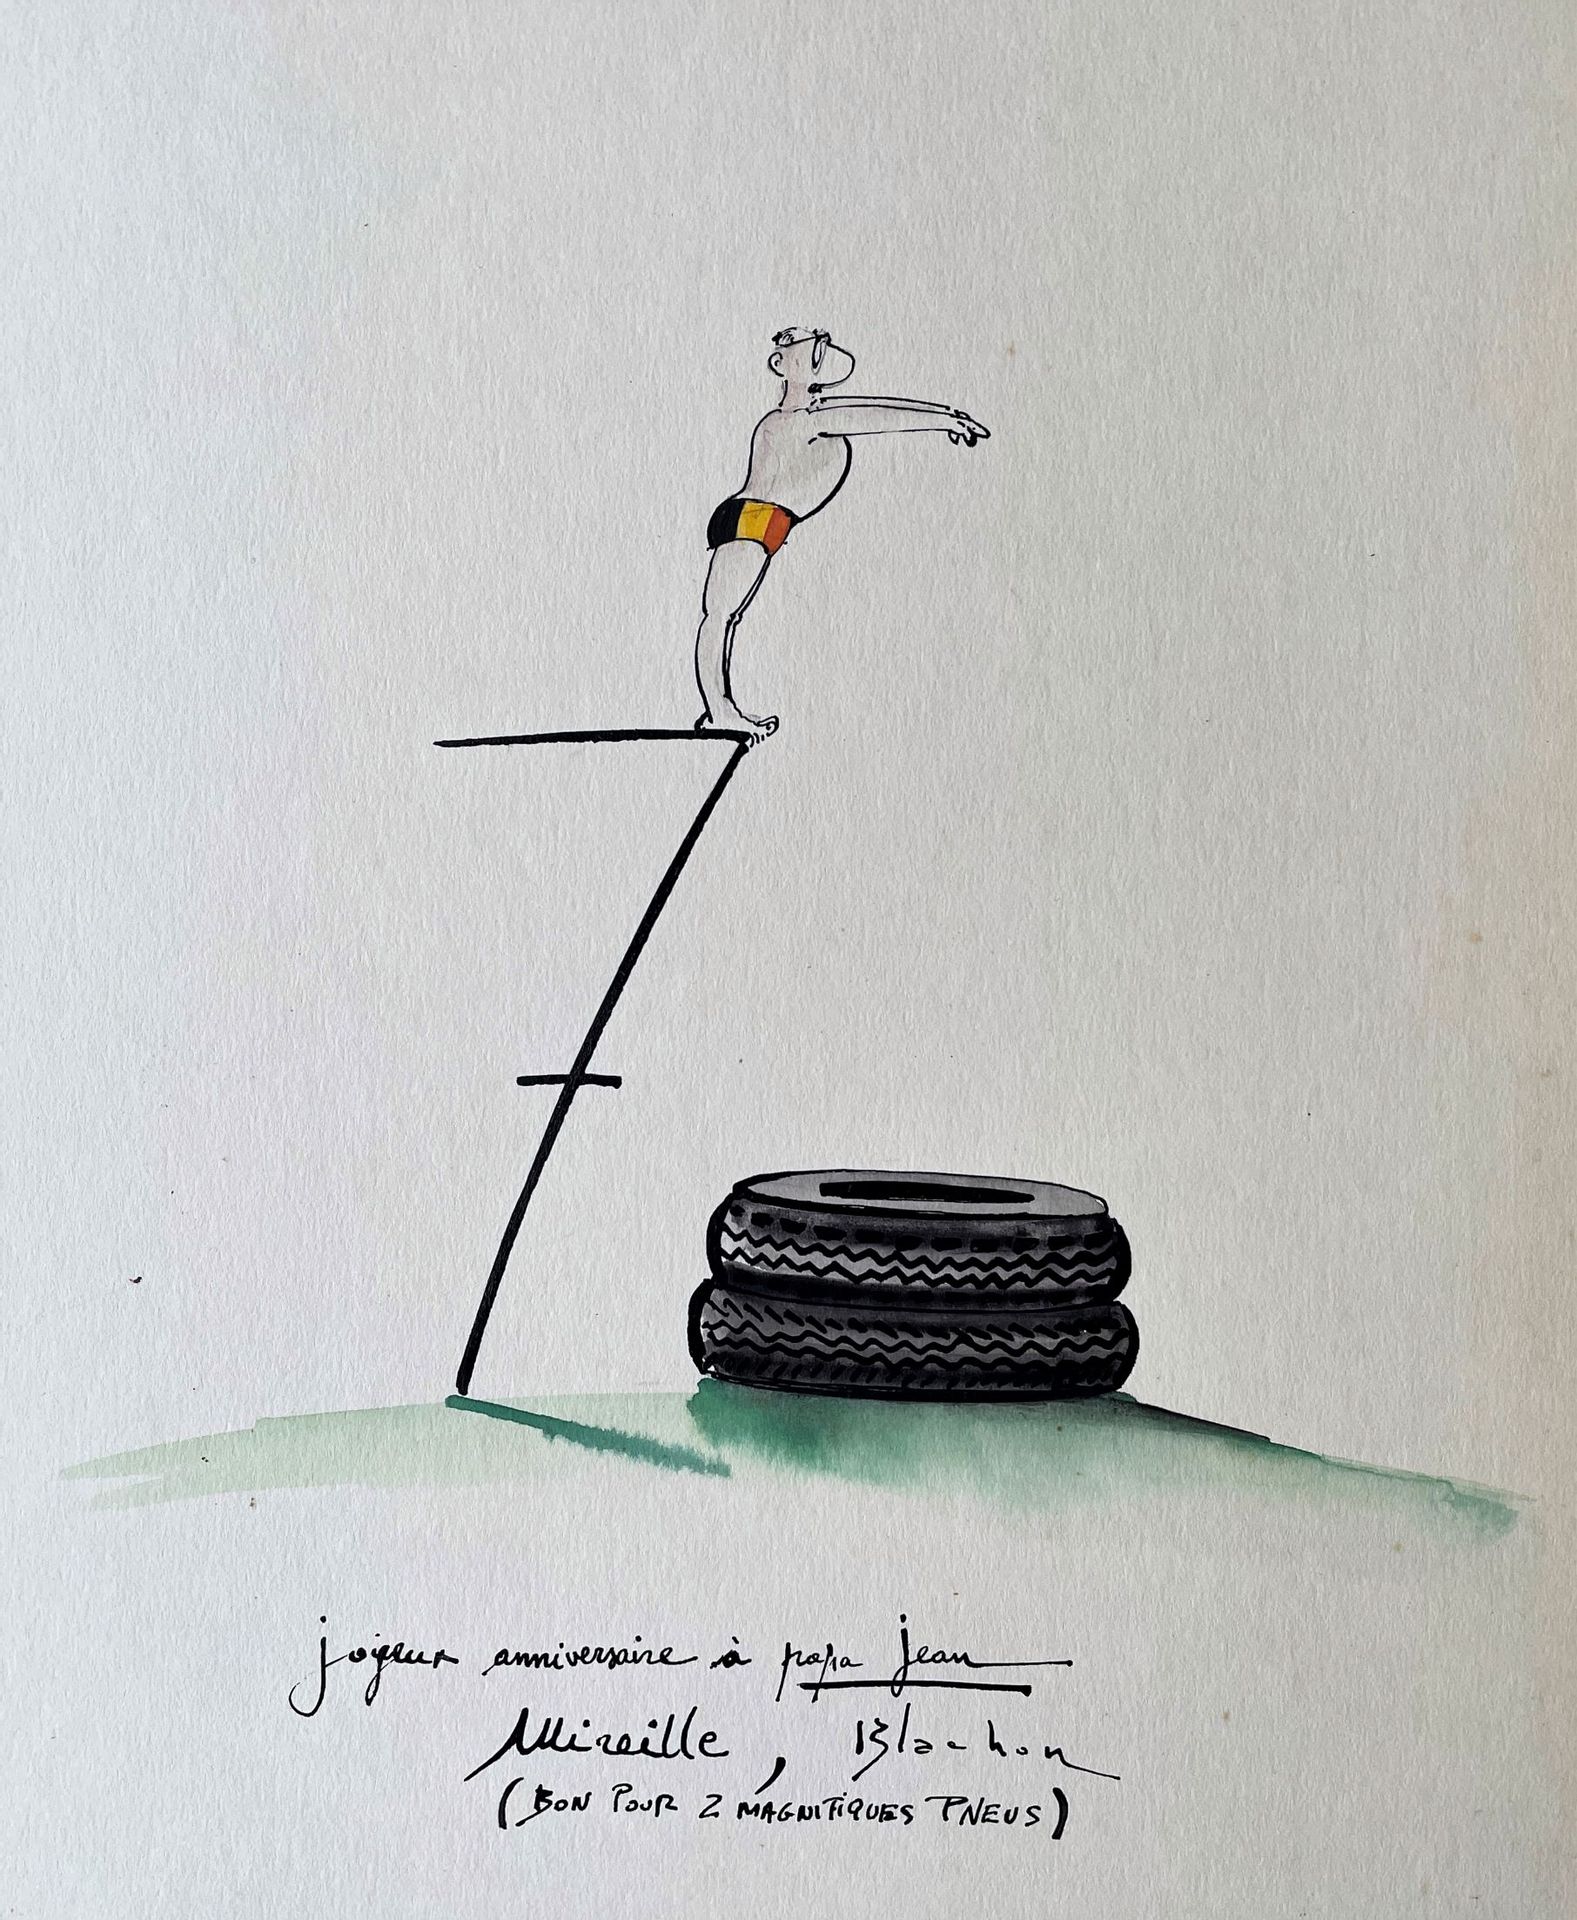 joyeux anniversaire à papa jean
Mireille, Blachon
(BON POUR 2 MAGNIFIQUES PNEUS)